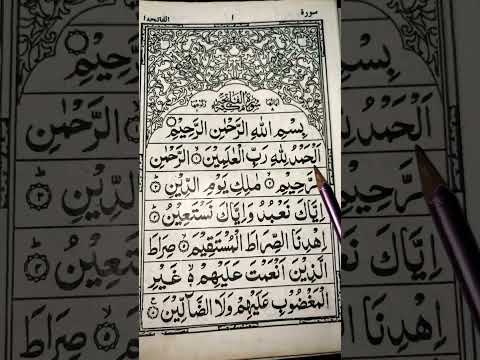 سورة
١
الفاتحة ١
سُوْرَةُ الْفَاتِحَةِ مَكِّيَّةٌ
بِسْمِ اللهِ الرَّحْمٰنِ الرَّحِيْمِ
اَلْحَمْدُ لِلّٰهِ رَبِّ الْعٰلَمِيْنَ ۙ الرَّحْمٰنِ
الرَّحِيْمِ ۙ مٰلِكِ يَوْمِ الدِّيْنِ ؕ
اِيَّاكَ نَعْبُدُ وَاِيَّاكَ نَسْتَعِيْنُ ؕ
اِهْدِنَا الصِّرَاطَ الْمُسْتَقِيْمَ ۙ صِرَاطَ
الَّذِيْنَ اَنْعَمْتَ عَلَيْهِمْ ۙ غَيْرِ
الْمَغْضُوْبِ عَلَيْهِمْ وَلَا الضَّآلِّيْنَ